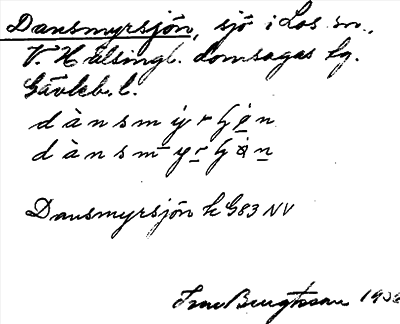 Dansmyrsjön, sjö i Los sn.,
V. Hälsingl. domsagas tg.
Gävleb. l.
dànsmy̆r
dànsmy̆r
Dansmyrsjön k G83 NV
Bengtsson